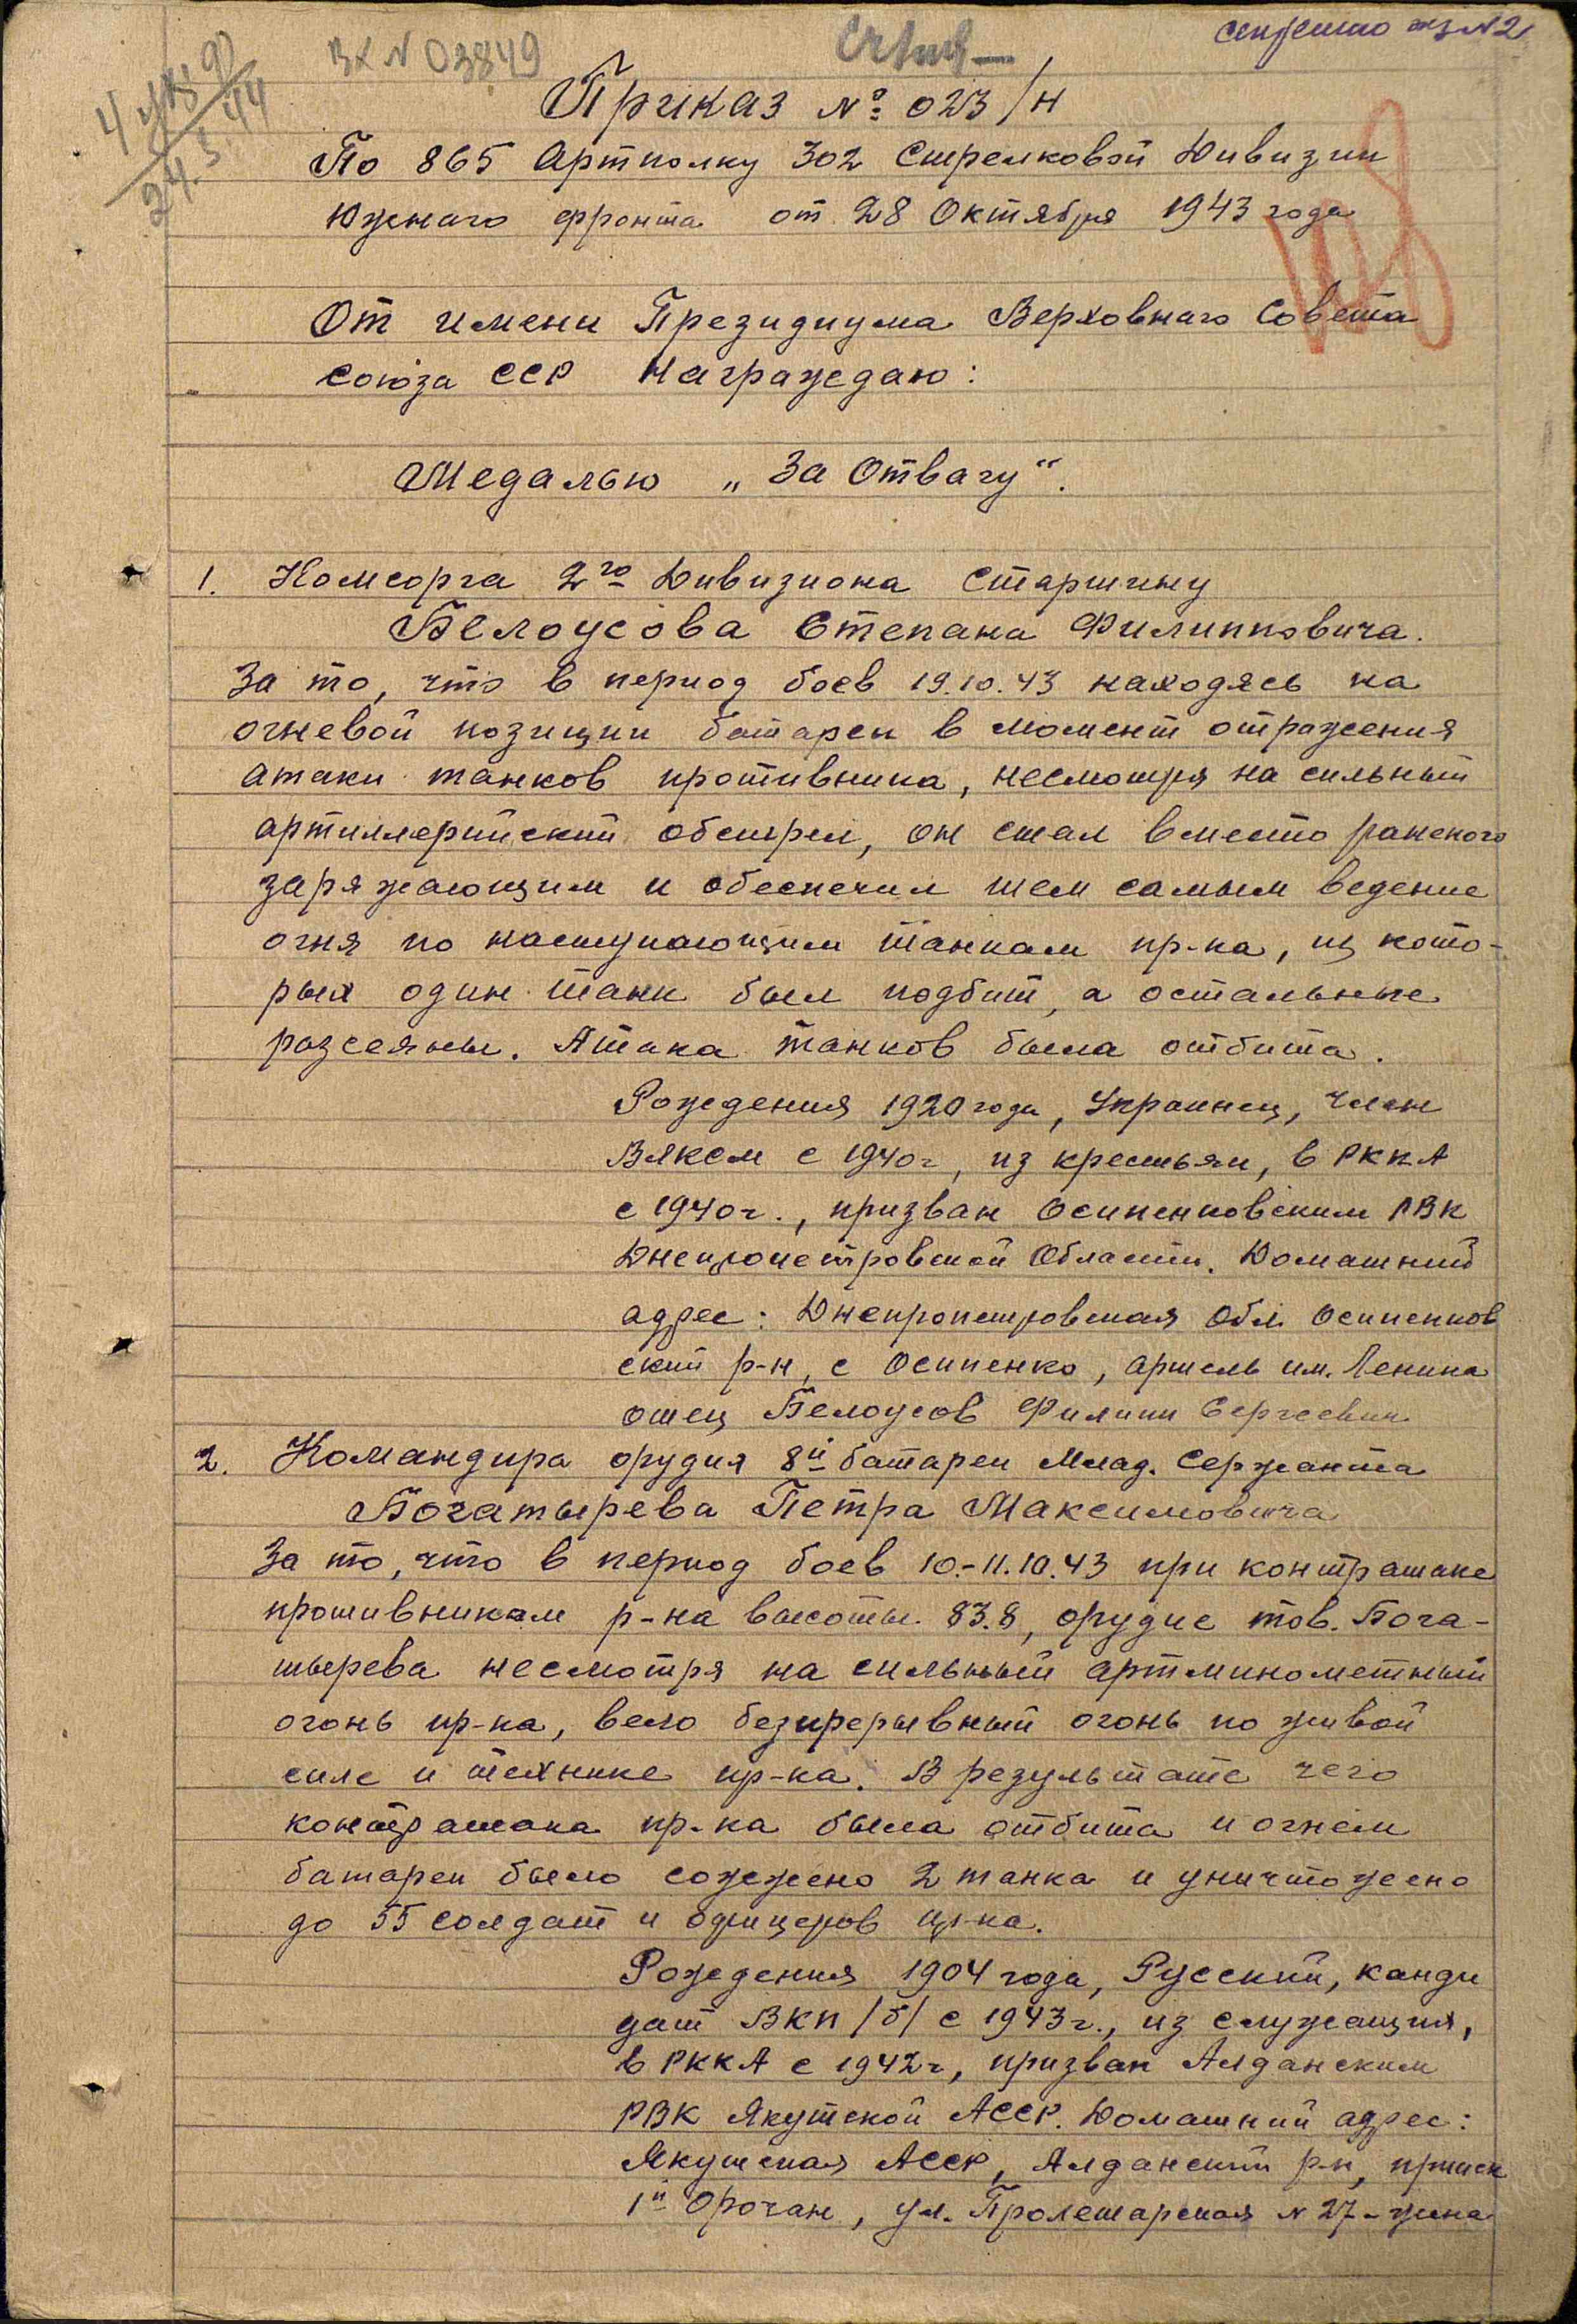 Вх N 03849
секретно экз N 2
Приказ № 023/н
По 865 Артполку 302 Стрелковой Дивизии
Южнаго фронта от 28 Октября 1943 года
От имени Президиума Верховнаго Совета
Союза ССР Награждаю:
Медалью „За Отвагу“.
1. Комсорга 2го Дивизиона Старшину
Белоусова Степана Филипповича.
За то, что в период боев 19.10.43 находясь на
огневой позиции батареи в момент отражения
атаки танков противника, несмотря на сильный
артиллерийский обстрел, он стал вместо раненого
заряжающим и обеспечил тем самым ведение
огня по наступающим танкам пр-ка, из кото-
рых один танк был подбит, а остальные
разсеяны. Атака танков была отбита.
Рождения 1920 года, Украинец, член
ВЛКСМ с 1940г, из крестьян, в РККА
с 1940г., призван Осипенковским РВК
Днепропетровской Области. Домашний
адрес: Днепропетровская Обл. Осипенков
ский р-н, с Осипенко, артель им. Ленина
отец Белоусов Филипп Сергеевич
2. Командира орудия 8й батареи Млад. Сержанта
Богатырева Петра Максимовича
За то, что в период боев 10.-11.10.43 при контратаке
противником р-на высоты 83.8, орудие тов. Бога-
тырева несмотря на сильный артминометный
огонь пр-ка, вело безпрерывный огонь по живой
силе и технике пр-ка. В результате чего
контратака пр-ка была отбита и огнем
батареи было сожжено 2 танка и уничтожено
до 55 солдат и офицеров пр-ка.
Рождения 1904 года, Русский, канди
дат ВКП/б/ с 1943г., из служащих,
в РККА с 1942г, призван Алданским
РВК Якутской АССР. Домашний адрес:
Якутская АССР, Алданский р-н, прииск
1й Орочан, ул. Пролетарская N 27 - жена